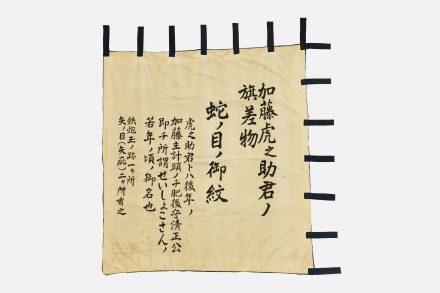 加藤虎之助君ノ
旗差物
蛇ノ目ノ御紋
虎之助君トハ後年ノ
加藤主計頭ノチ肥後守清正公
即チ所謂せいしよこさんノ
若年ノ頃ノ御名也
鉄炮玉ノ跡一ヶ所
矢ノ目(矢疵)二ヶ所有之